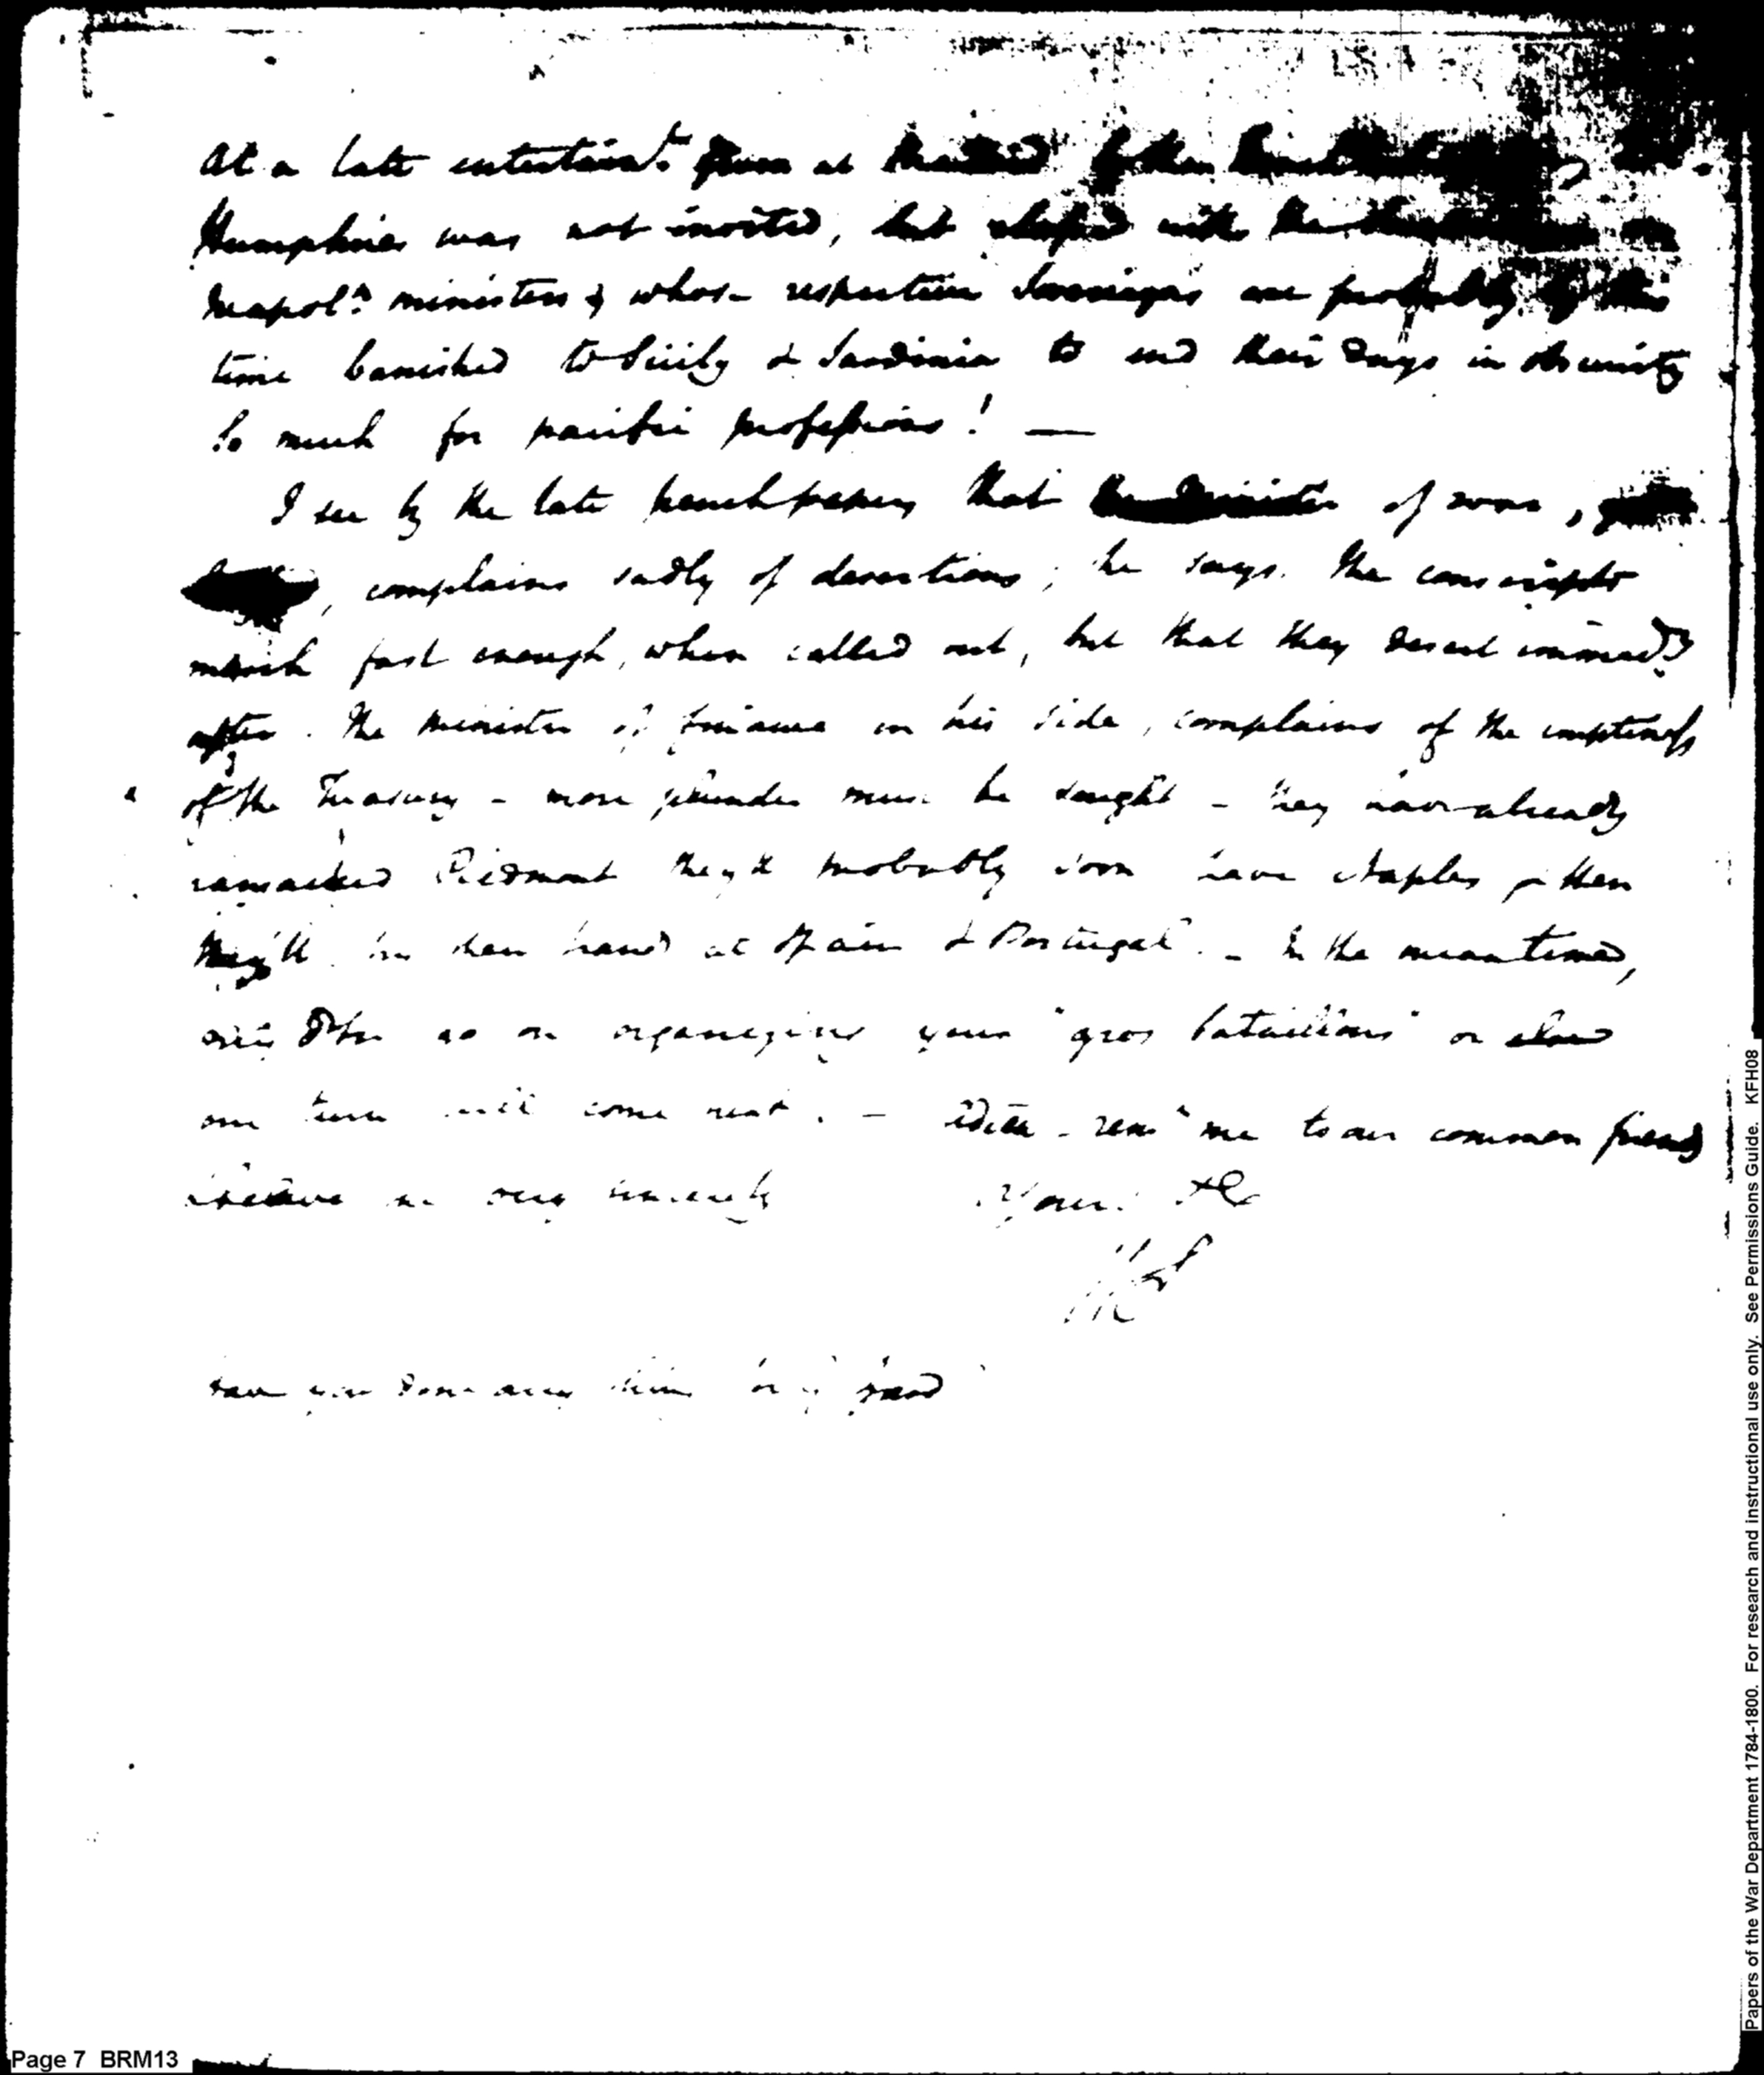 At a late entertaint. given at Madrid
Humphries was not invited, but classed with the
Neapoln ministers, whose respective Sovereigns are probably by this
time banished to Sicily & Sardinia to end their days in obscurity
So much for pacific professions! —
I see by the late french papers that the minister of war,
complains sadly of desertions; he says the conscripts
march fast enough, when called out, but that they desert immedy
after. The minister of finance on his side, complains of the emptiness
of the Treasury - more plunder must be sought - they have already
ransacked Piedmont they'll probably soon have Naples & then
they'll try their hand at Spain & Portugal. - In the mean time,
go on organizing your "gros bataillons" or
our turn will come next. - Adieu - remr me to our common friends
& believe me very sincerely Yours &c
have you done any thing
Page 7 BRM13
Papers of the War Department 1784-1800. For research and instructional use only. See Permissions Guide. KFH08